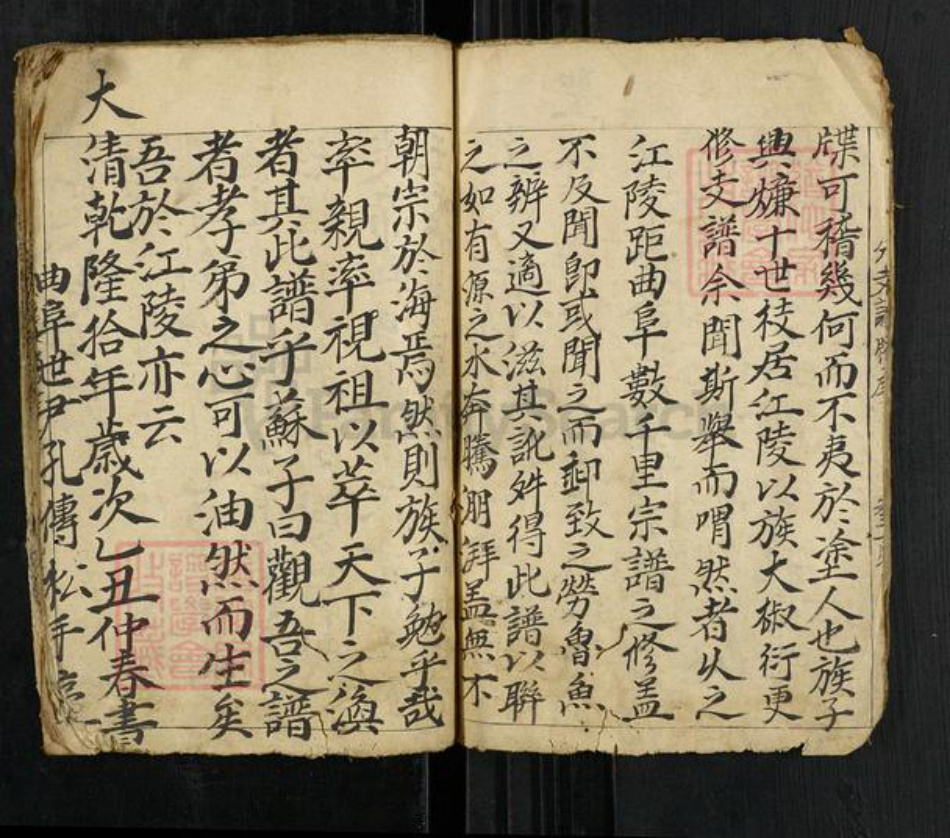 牒可稽幾何而不夷於塗人也族子
興㷖十世枝居江陵以族大椒衍更
修支譜余聞斯舉而喟然者久之
江陵距曲阜數千里宗譜之修盖
不及聞卽或聞之而郵致之勞魯魚
之辨又適以滋其訛舛得此譜以聯
之如有源之水奔騰朋湃盖無不
朝宗於海焉然則族子勉乎哉
率親率視祖以萃天下之渙
者其此譜乎蘇子曰觀吾之譜
者孝弟之心可以油然而生矣
吾於江陵亦云
大清乾隆拾年歲次乙丑仲春書
曲阜世尹孔傳松
FamilySearch